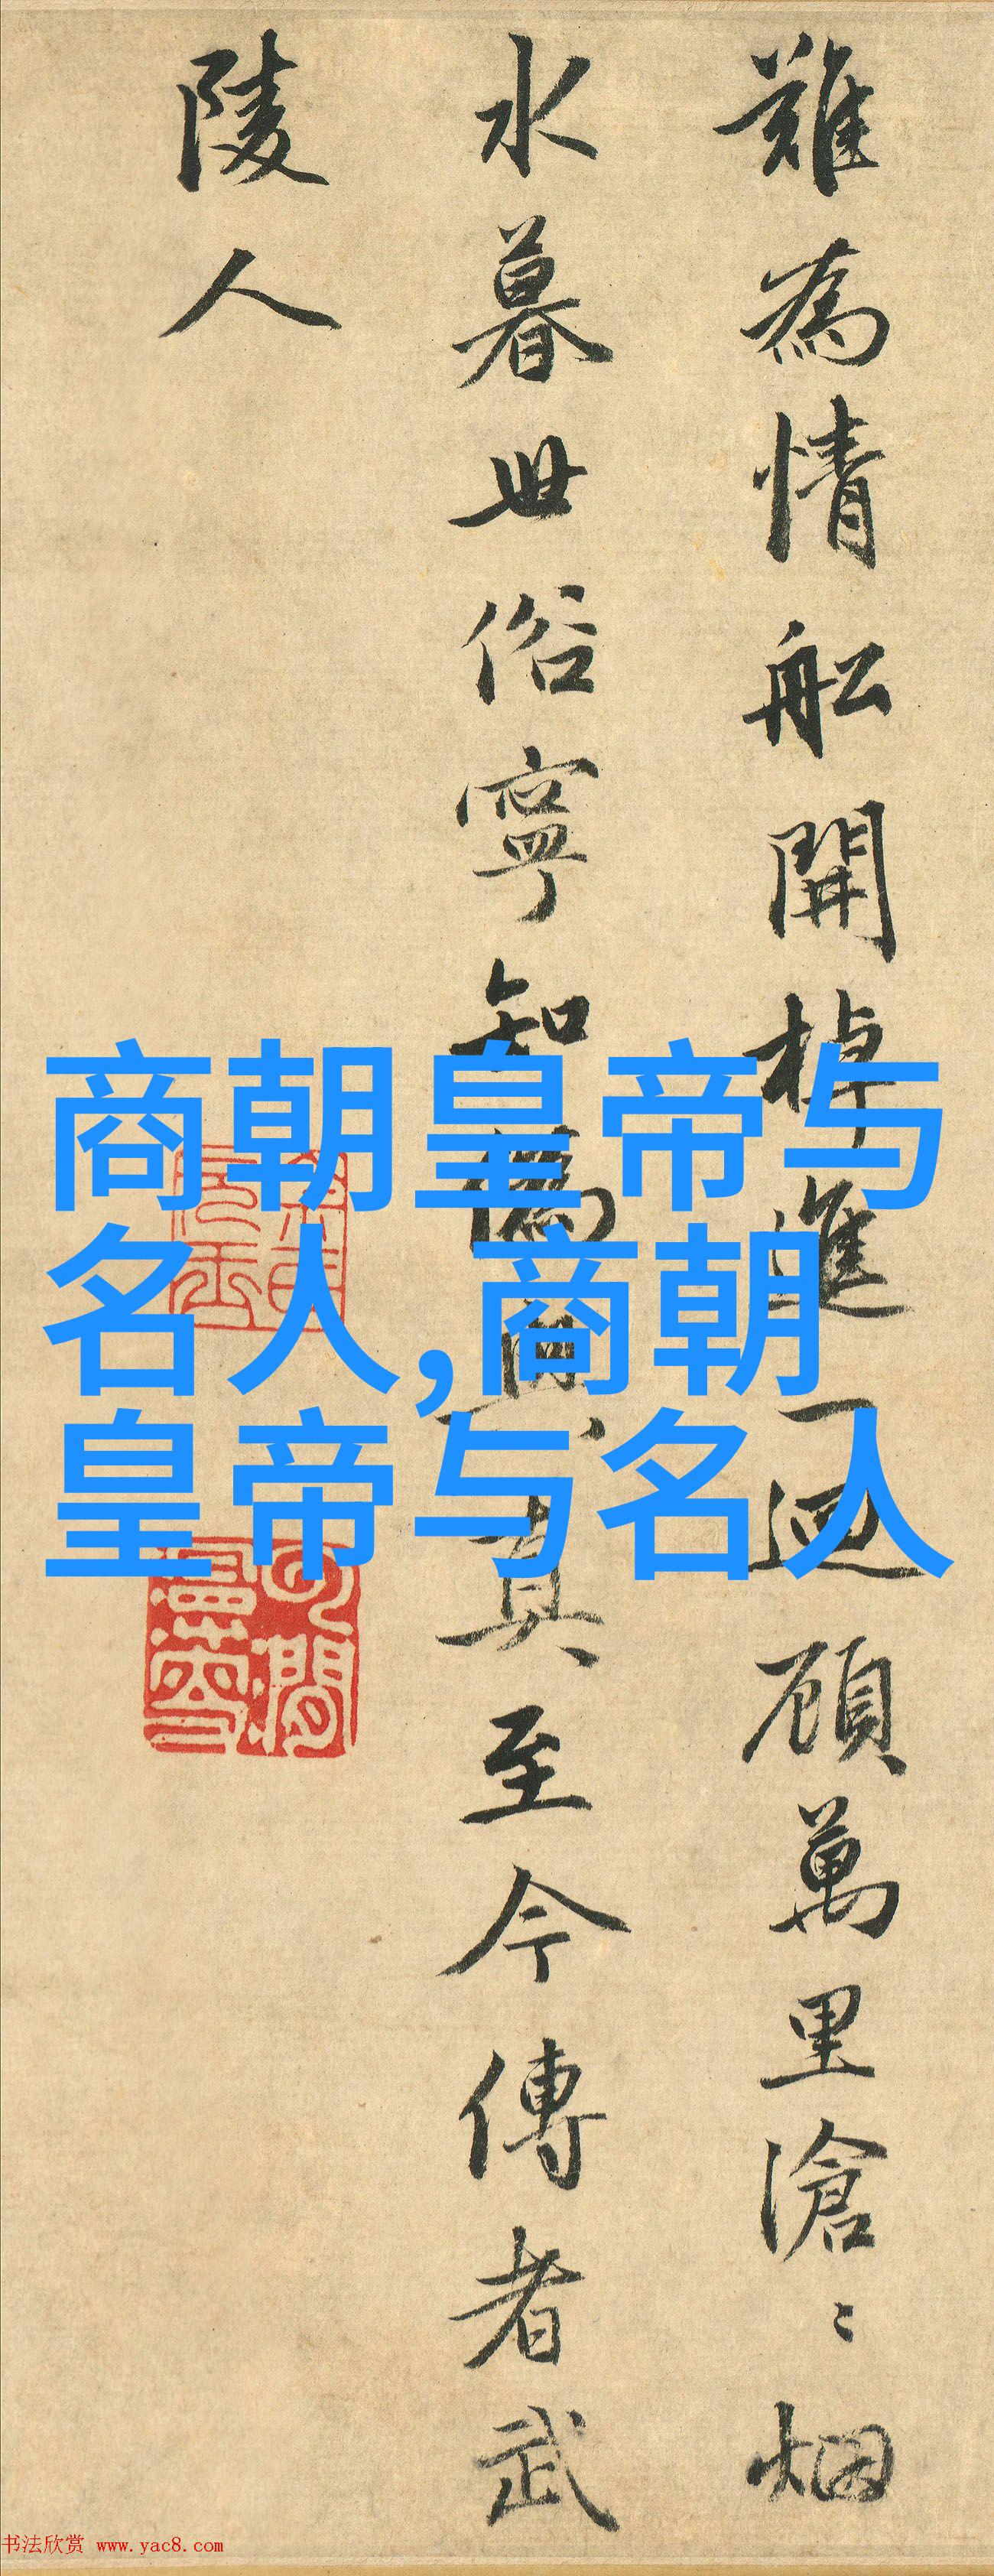 難為情舩開棹進一迴顧萬里滄〻烟
水暮世俗寧知偽與真至今傳者武
陵人
商朝皇帝与
名人,商朝
皇帝与名人
书法欣赏 www.yac8.com